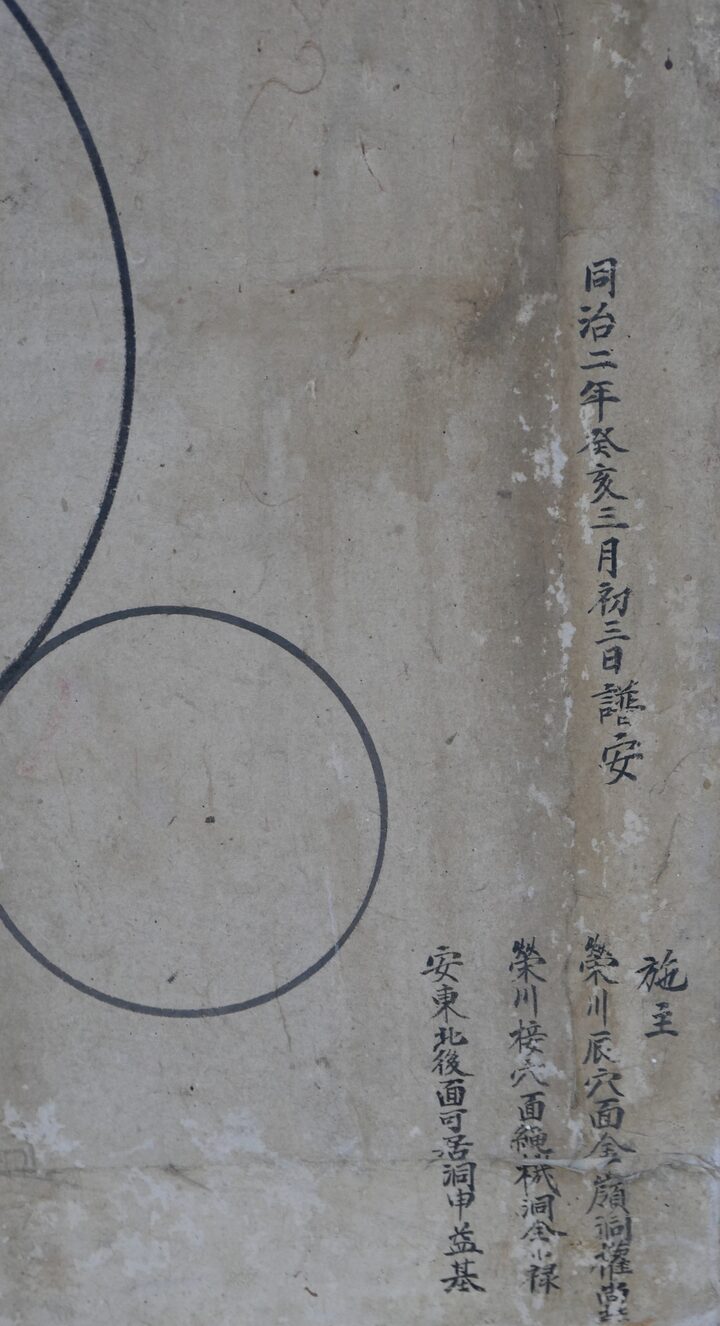 同治二年癸亥三月初三日譱安
施主
榮川辰穴面金嶺洞權
榮川接穴面繩機洞金小祿
安東北後面可活洞申益基